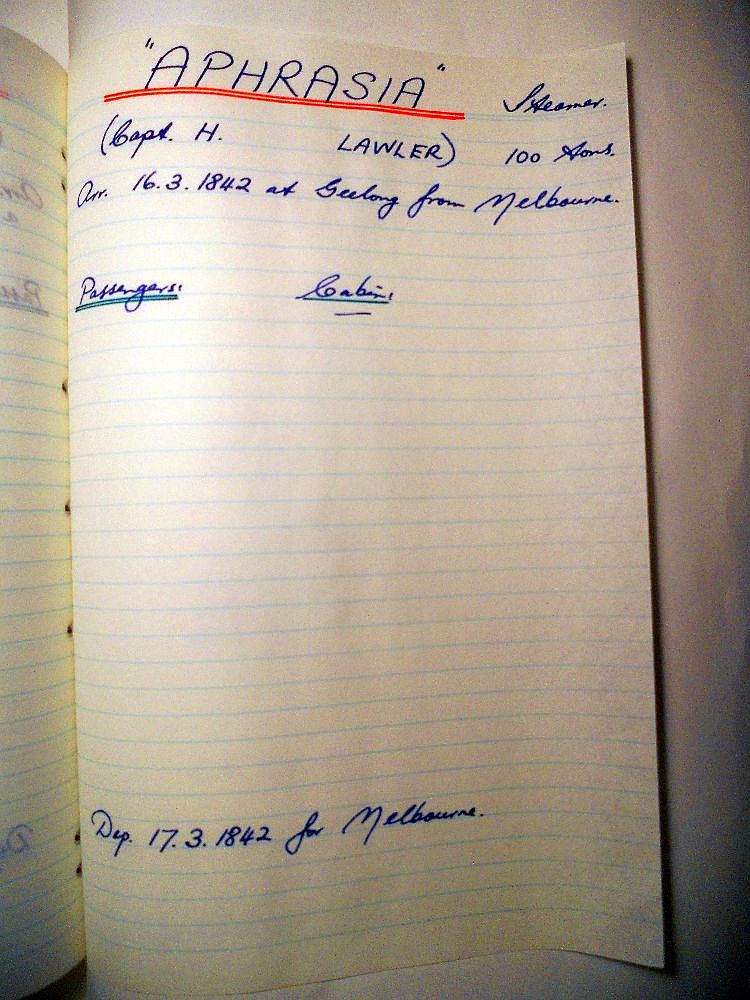 "APHRASIA" Steamer.
(Capt. H. LAWLER) 100 tons.
Arr. 16.3.1842 at Geelong from Melbourne.
Passengers: Cabin:
Dep. 17.3.1842 for Melbourne.